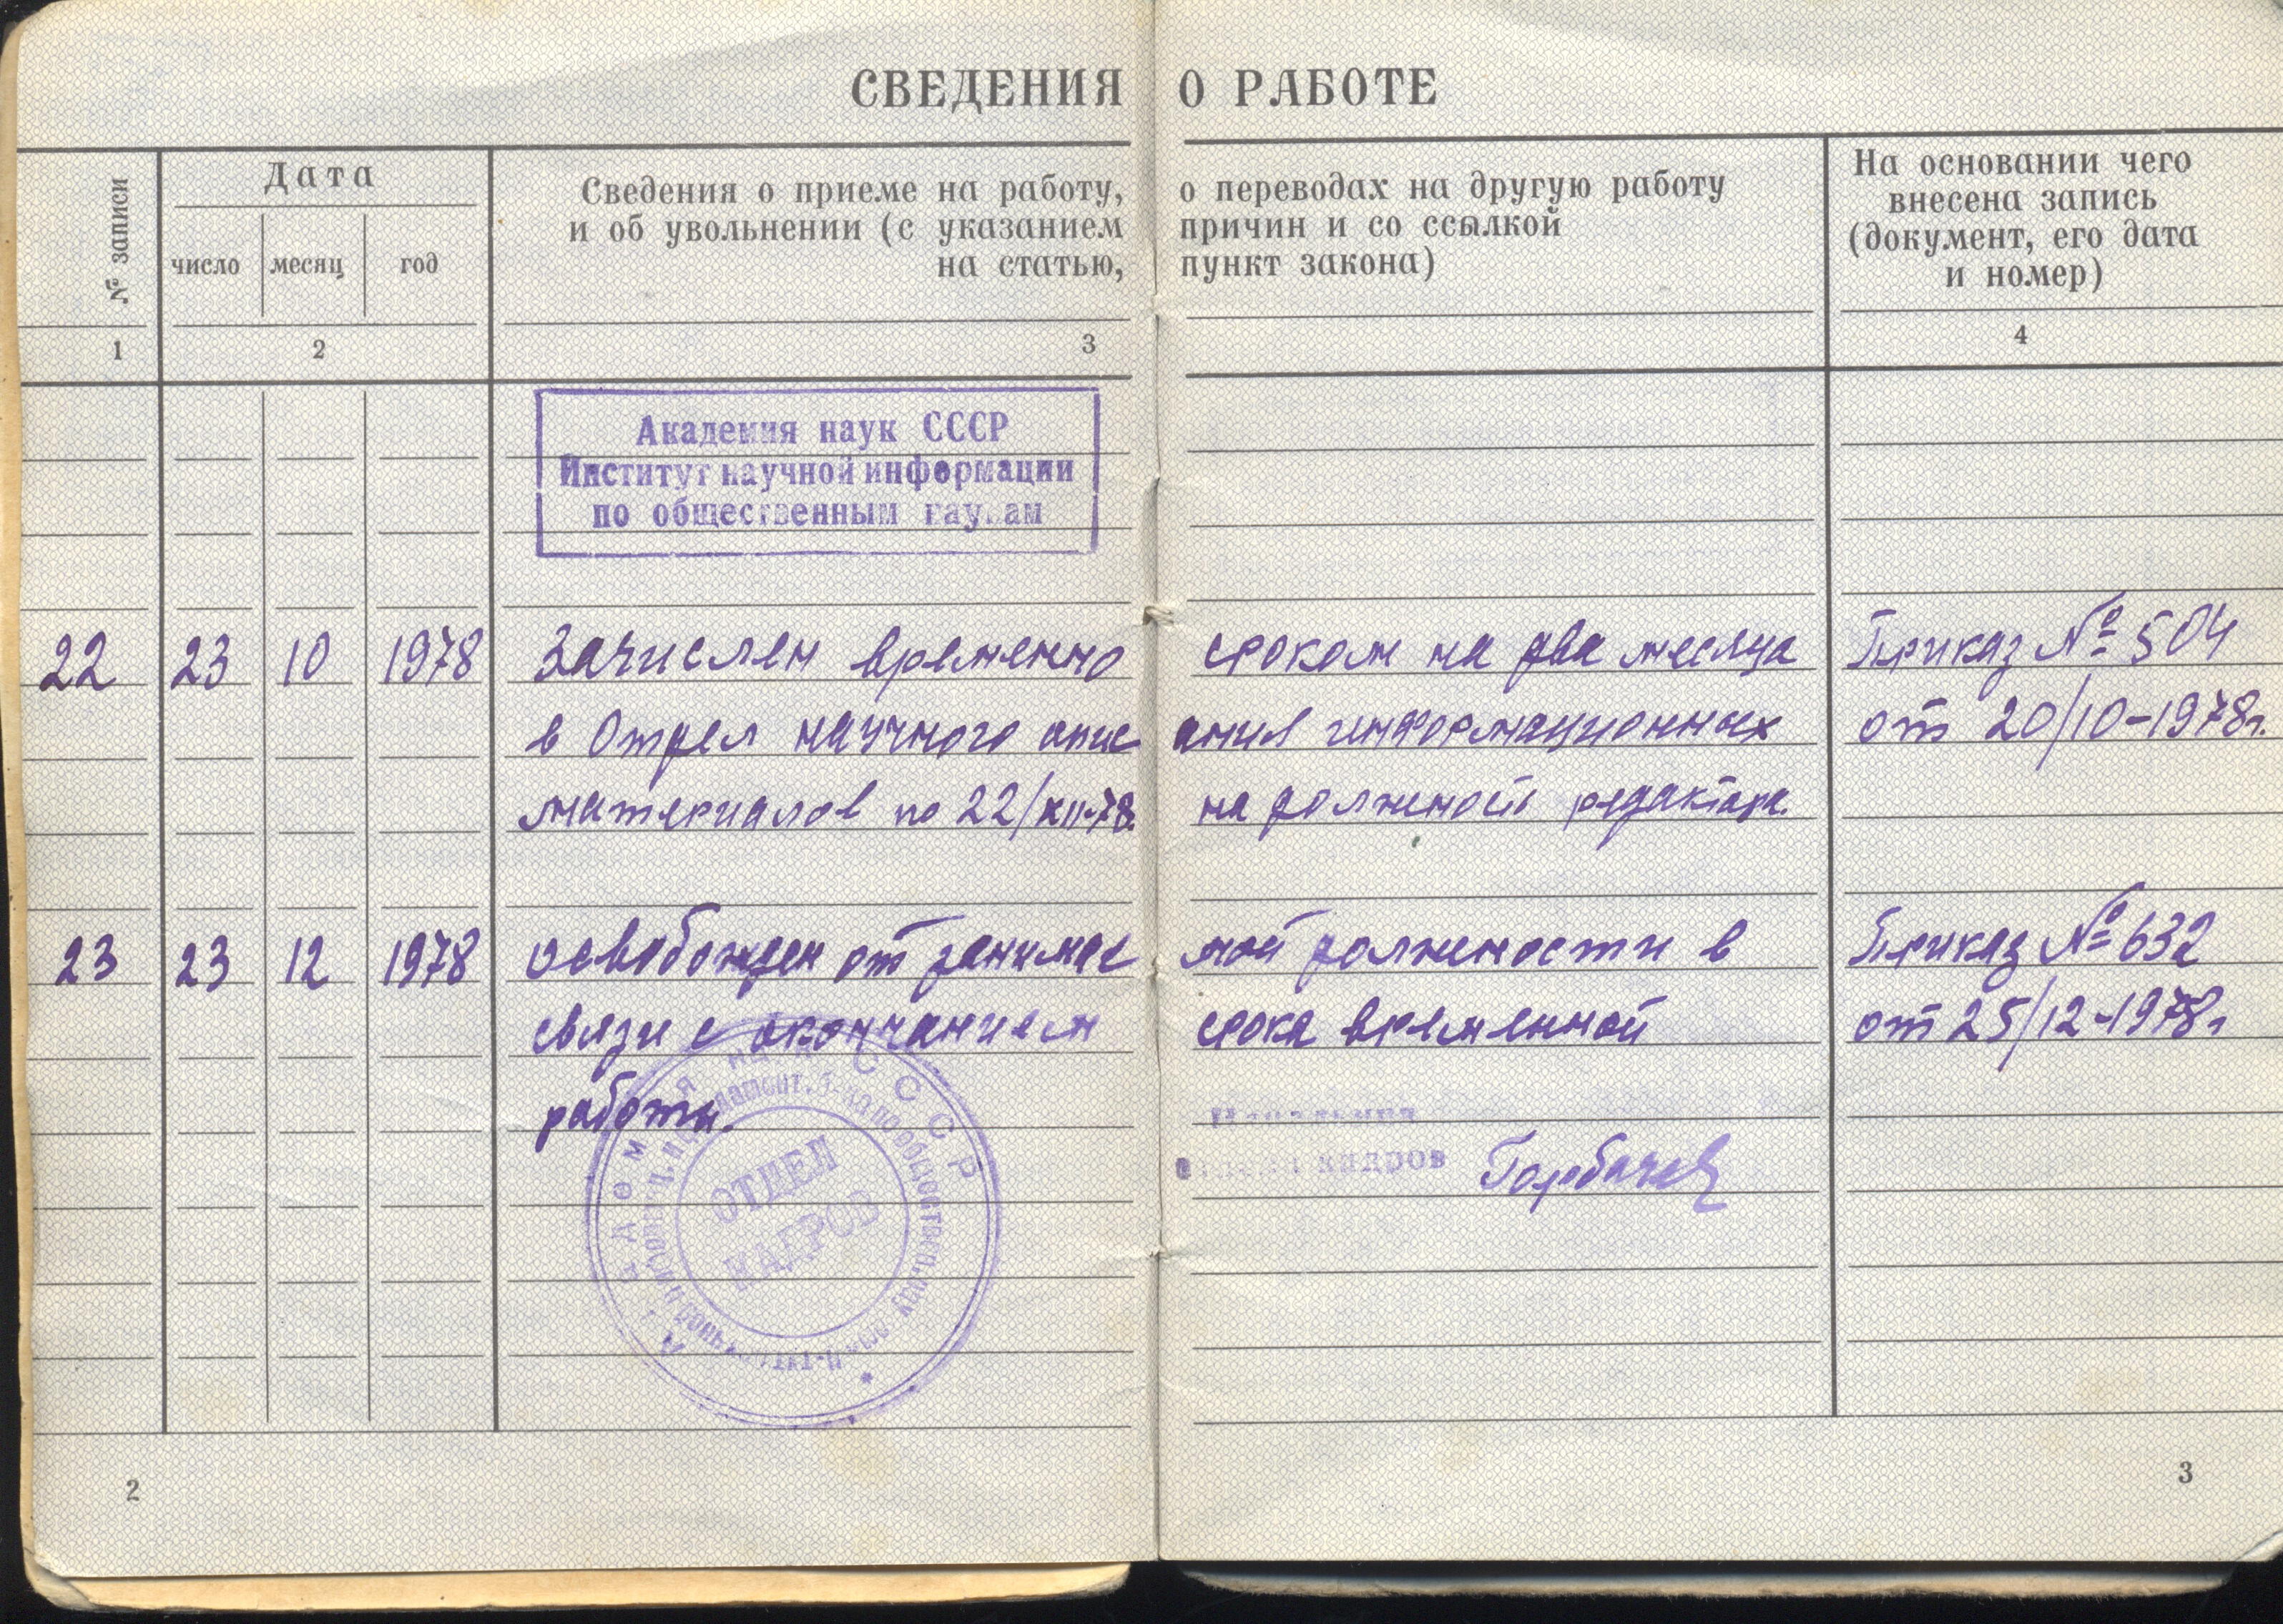 СВЕДЕНИЯ О РАБОТЕ
№ записи
Дата
число месяц год
Сведения о приеме на работу, о переводах на другую работу
и об увольнении (с указанием причин и со ссылкой
на статью, пункт закона)
На основании чего
внесена запись
(документ, его дата
и номер)
1 2 3 4
Академия наук СССР
Институт научной информации
по общественным наукам
22 23 10 1978 Зачислен временно сроком на два месяца Приказ № 504
в Отдел научного описания информационных от 20/10-1978г.
материалов по 22/XII-78. на должность редактора.
23 23 12 1978 освобожден от занимаемой должности в Приказ № 632
связи с окончанием срока временной от 25/12-1978г
работы.
кадров Горбачев
Академия наук СССР
ОТДЕЛ
КАДРОВ
2 3